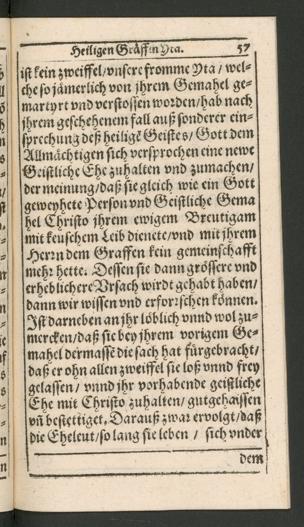 Heiligen Gräffin Yta. 57
ist kein zweiffel/vnsere fromme Yta/wel-
che so jämerlich von jhrem Gemahel ge-
martyrt vnd verstossen worden/hab nach
jhrem geschehenem fall auß sonderer ein-
sprechung deß heiligē Geistes/Gott dem
Allmächtigen sich versprochen eine newe
Geistliche Ehe zuhalten vnd zumachen/
der meinung/daß sie gleich wie ein Gott
geweyhete Person vnd Geistliche Gema
hel Christo jhrem ewigem Breutigam
mit keuschem Leib dienete/vnd mit jhrem
Herrn dem Graffen kein gemeinschafft
mehr hette. Dessen sie dann grössere vnd
erheblichere Vrsach wirdt gehabt haben/
dann wir wissen vnd erforrschen können.
Ist darneben an jhr löblich vnnd wol zu-
mercken/daß sie bey jhrem vorigem Ge-
mahel dermassē die sach hat fürgebracht/
daß er ohn allen zweiffel sie loß vnnd frey
gelassen/vnnd jhr vorhabende geistliche
Ehe mit Christo zuhalten/gutgehaissen
vñ bestettiget. Darauß zwar ervolgt/daß
die Eheleut/so lang sie leben/sich vnder
dem